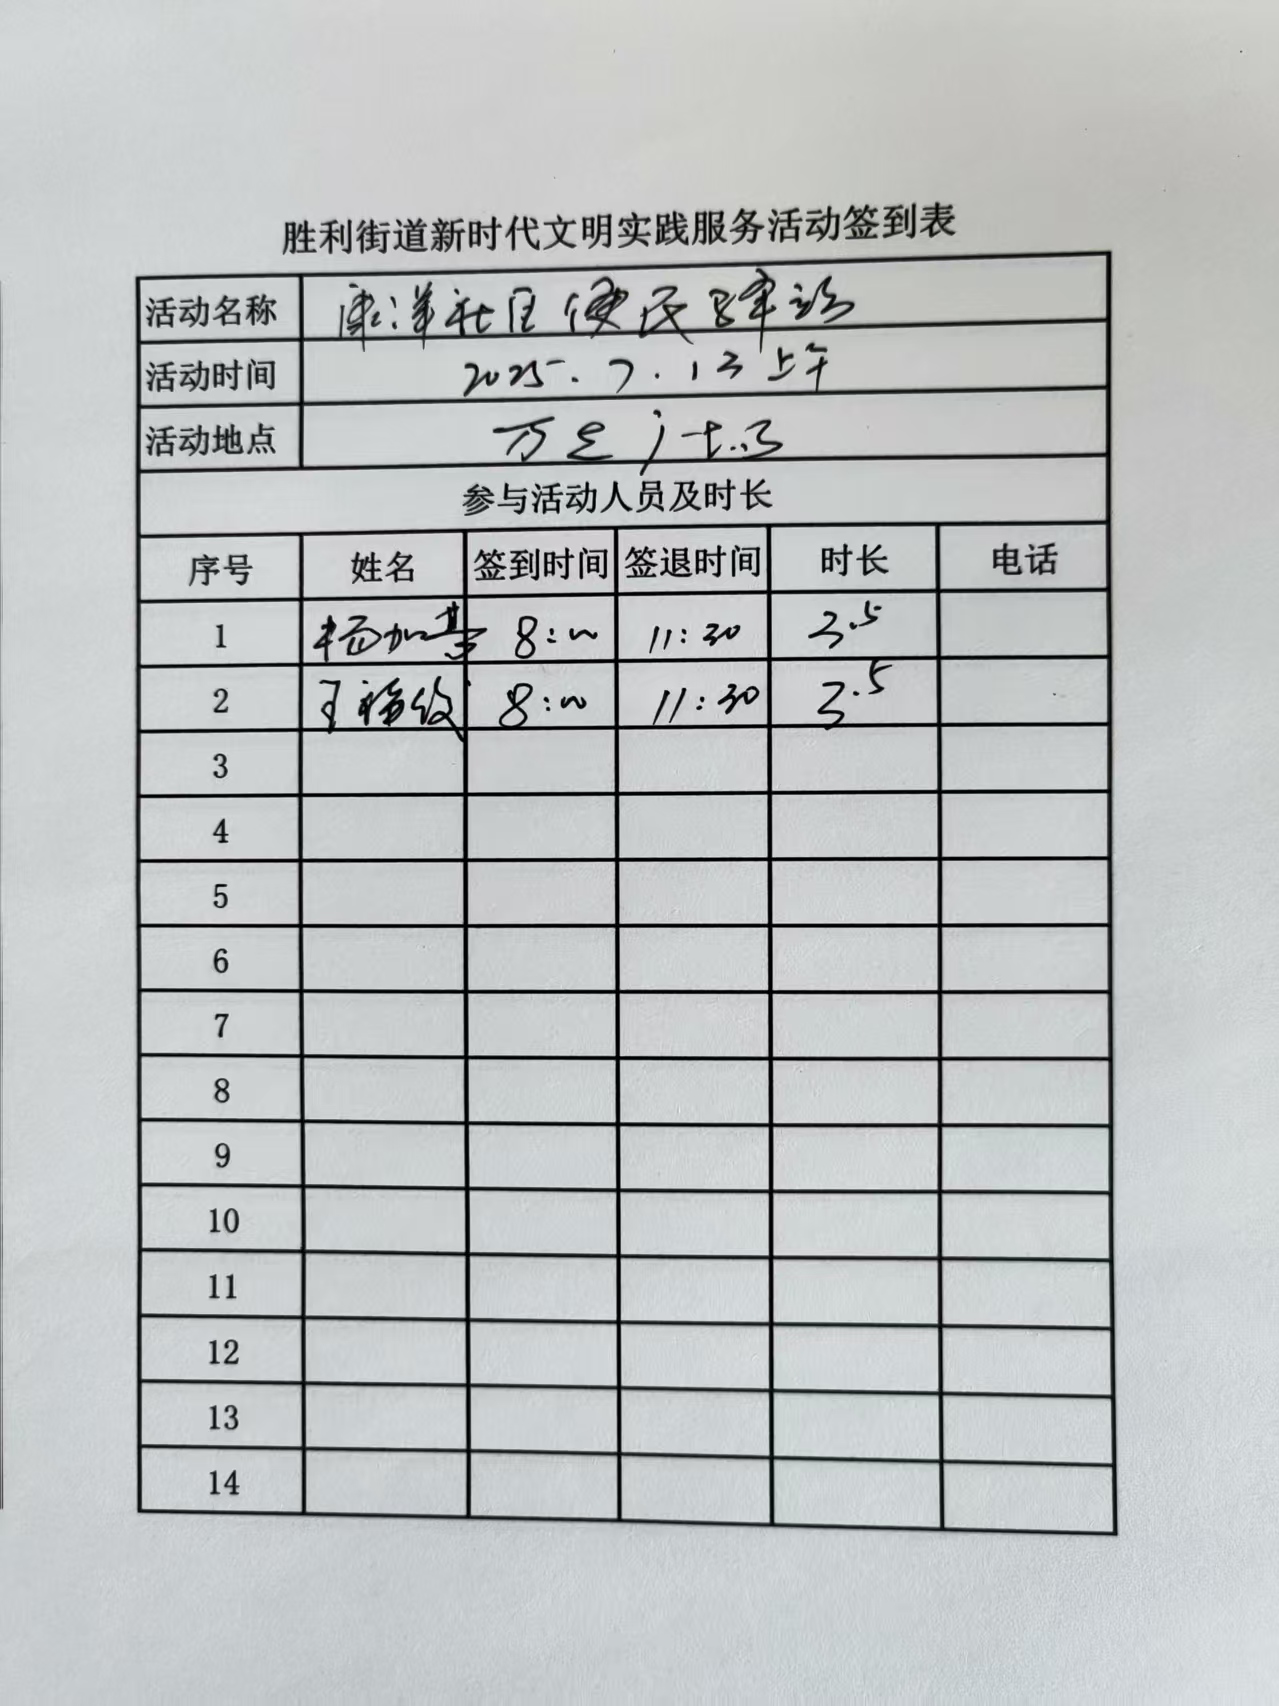 胜利街道新时代文明实践服务活动签到表
活动名称 康洋社区便民驿站
活动时间 2025.7.13上午
活动地点 万
参与活动人员及时长
序号 姓名 签到时间 签退时间 时长 电话
1 杨加 8:00 11:30 3.5
2 王 8:00 11:30 3.5
3
4
5
6
7
8
9
10
11
12
13
14